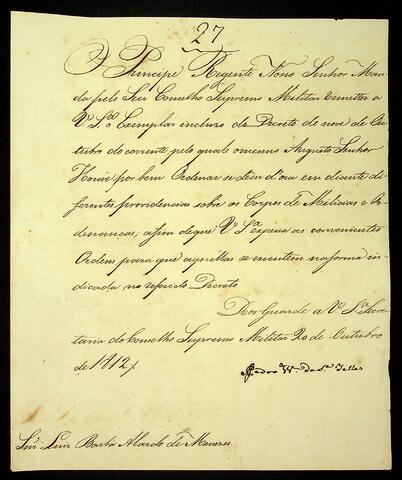 27
O Principe Regente Nosso Senhor Man-
da pelo Seu Conselho Supremo Militar remetter a
V. S.ª o Exemplar incluso do Decreto de nove de Ou-
tubro do corrente pelo qual o mesmo Augusto Senhor
Houve por bem Ordenar se dem d'ora em deante di-
ferentes providencias sobre os Corpos de Milicias e Or-
denancas; afim de que V. S.ª expessa as convenientes
Ordens para que aquellas se executem na forma in-
dicada no referido Decreto
Deos Guarde a V. S.ª Secre-
taria do Conselho Supremo Militar 20 de Outubro
de 1812
Pedro
Snr. Luiz Barba Alardo de Menezes